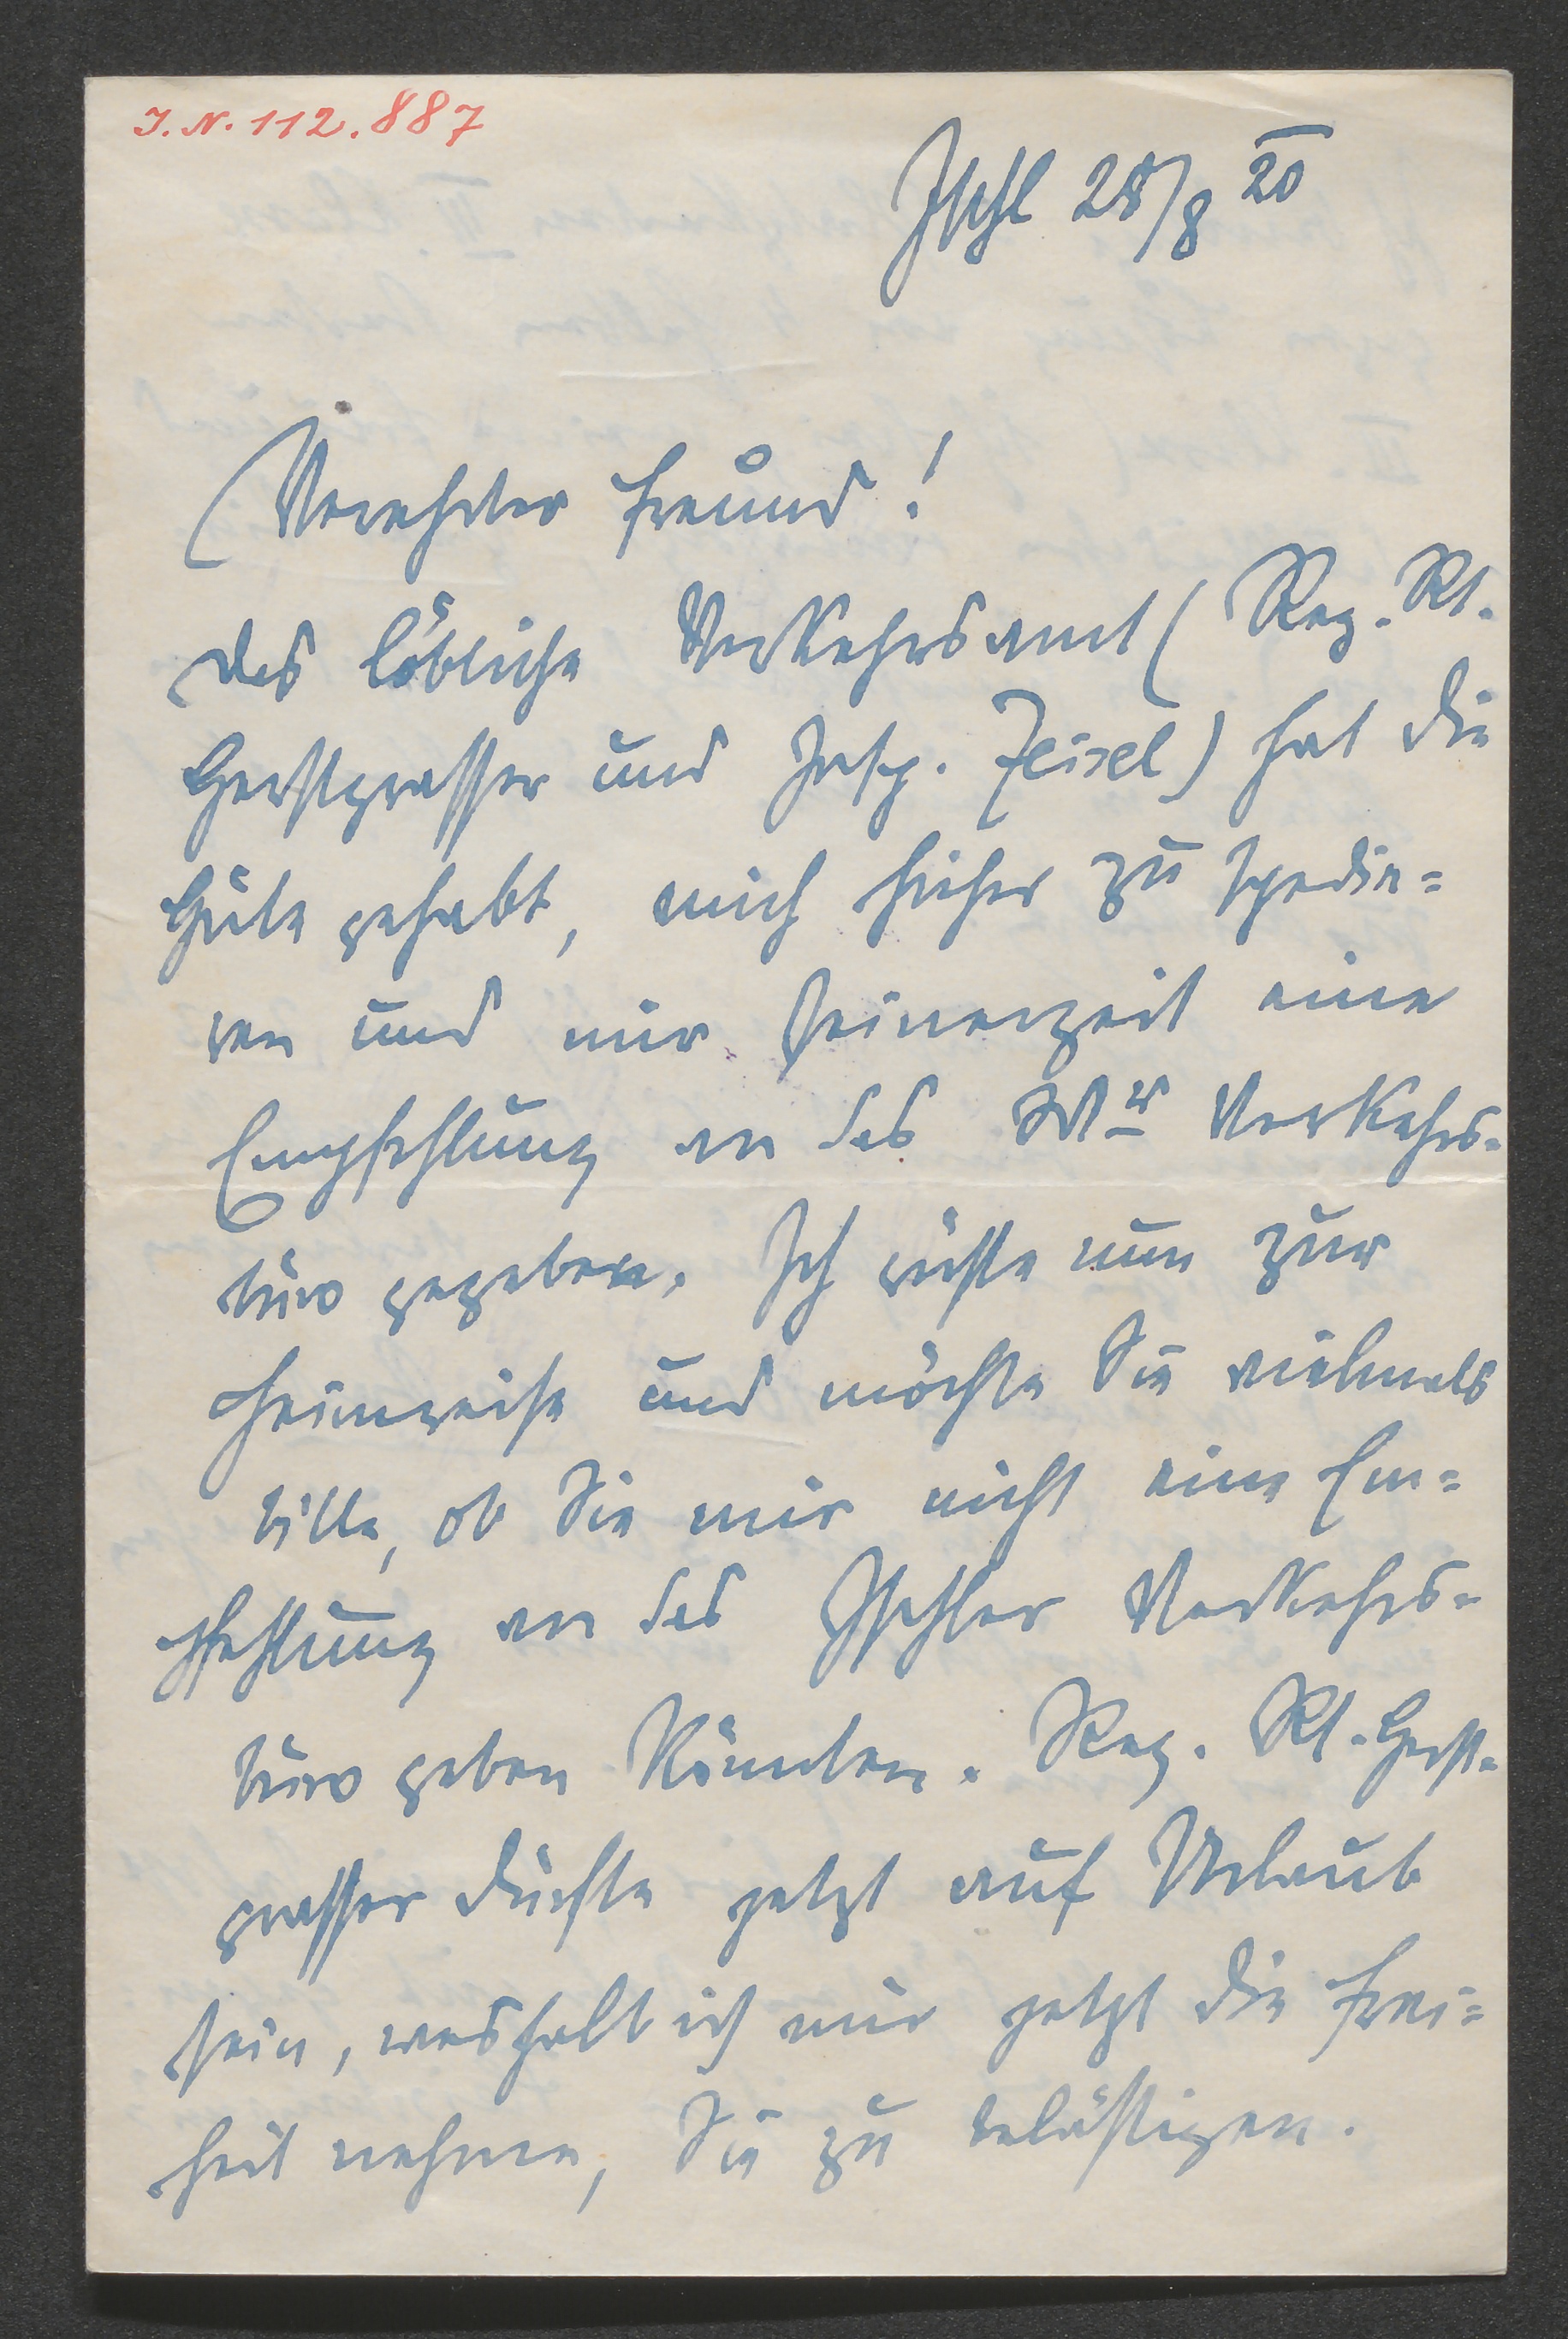 I. N. 112.887
Ischl 28/8 20
Verehrter Freund!
Das löbliche Verkehrsamt (Reg. Rt.
Gerstgrasser und Insp. Zeisel) hat die
Güte gehabt, mich hieher zu spedie=
ren und mir seinerzeit eine
Empfehlung an das Wr Verkehrs-
büro gegeben. Ich rüste nun zur
Heimreise und möchte Sie vielmals
bitte, ob Sie mir nicht eine Em=
pfehlung an das Ischler Verkehrs-
büro geben könnten. Reg. Rt. Gerst-
grasser dürfte jetzt auf Urlaub
sein, weshalb ich mir jetzt die Frei=
heit nehme, Sie zu belästigen.